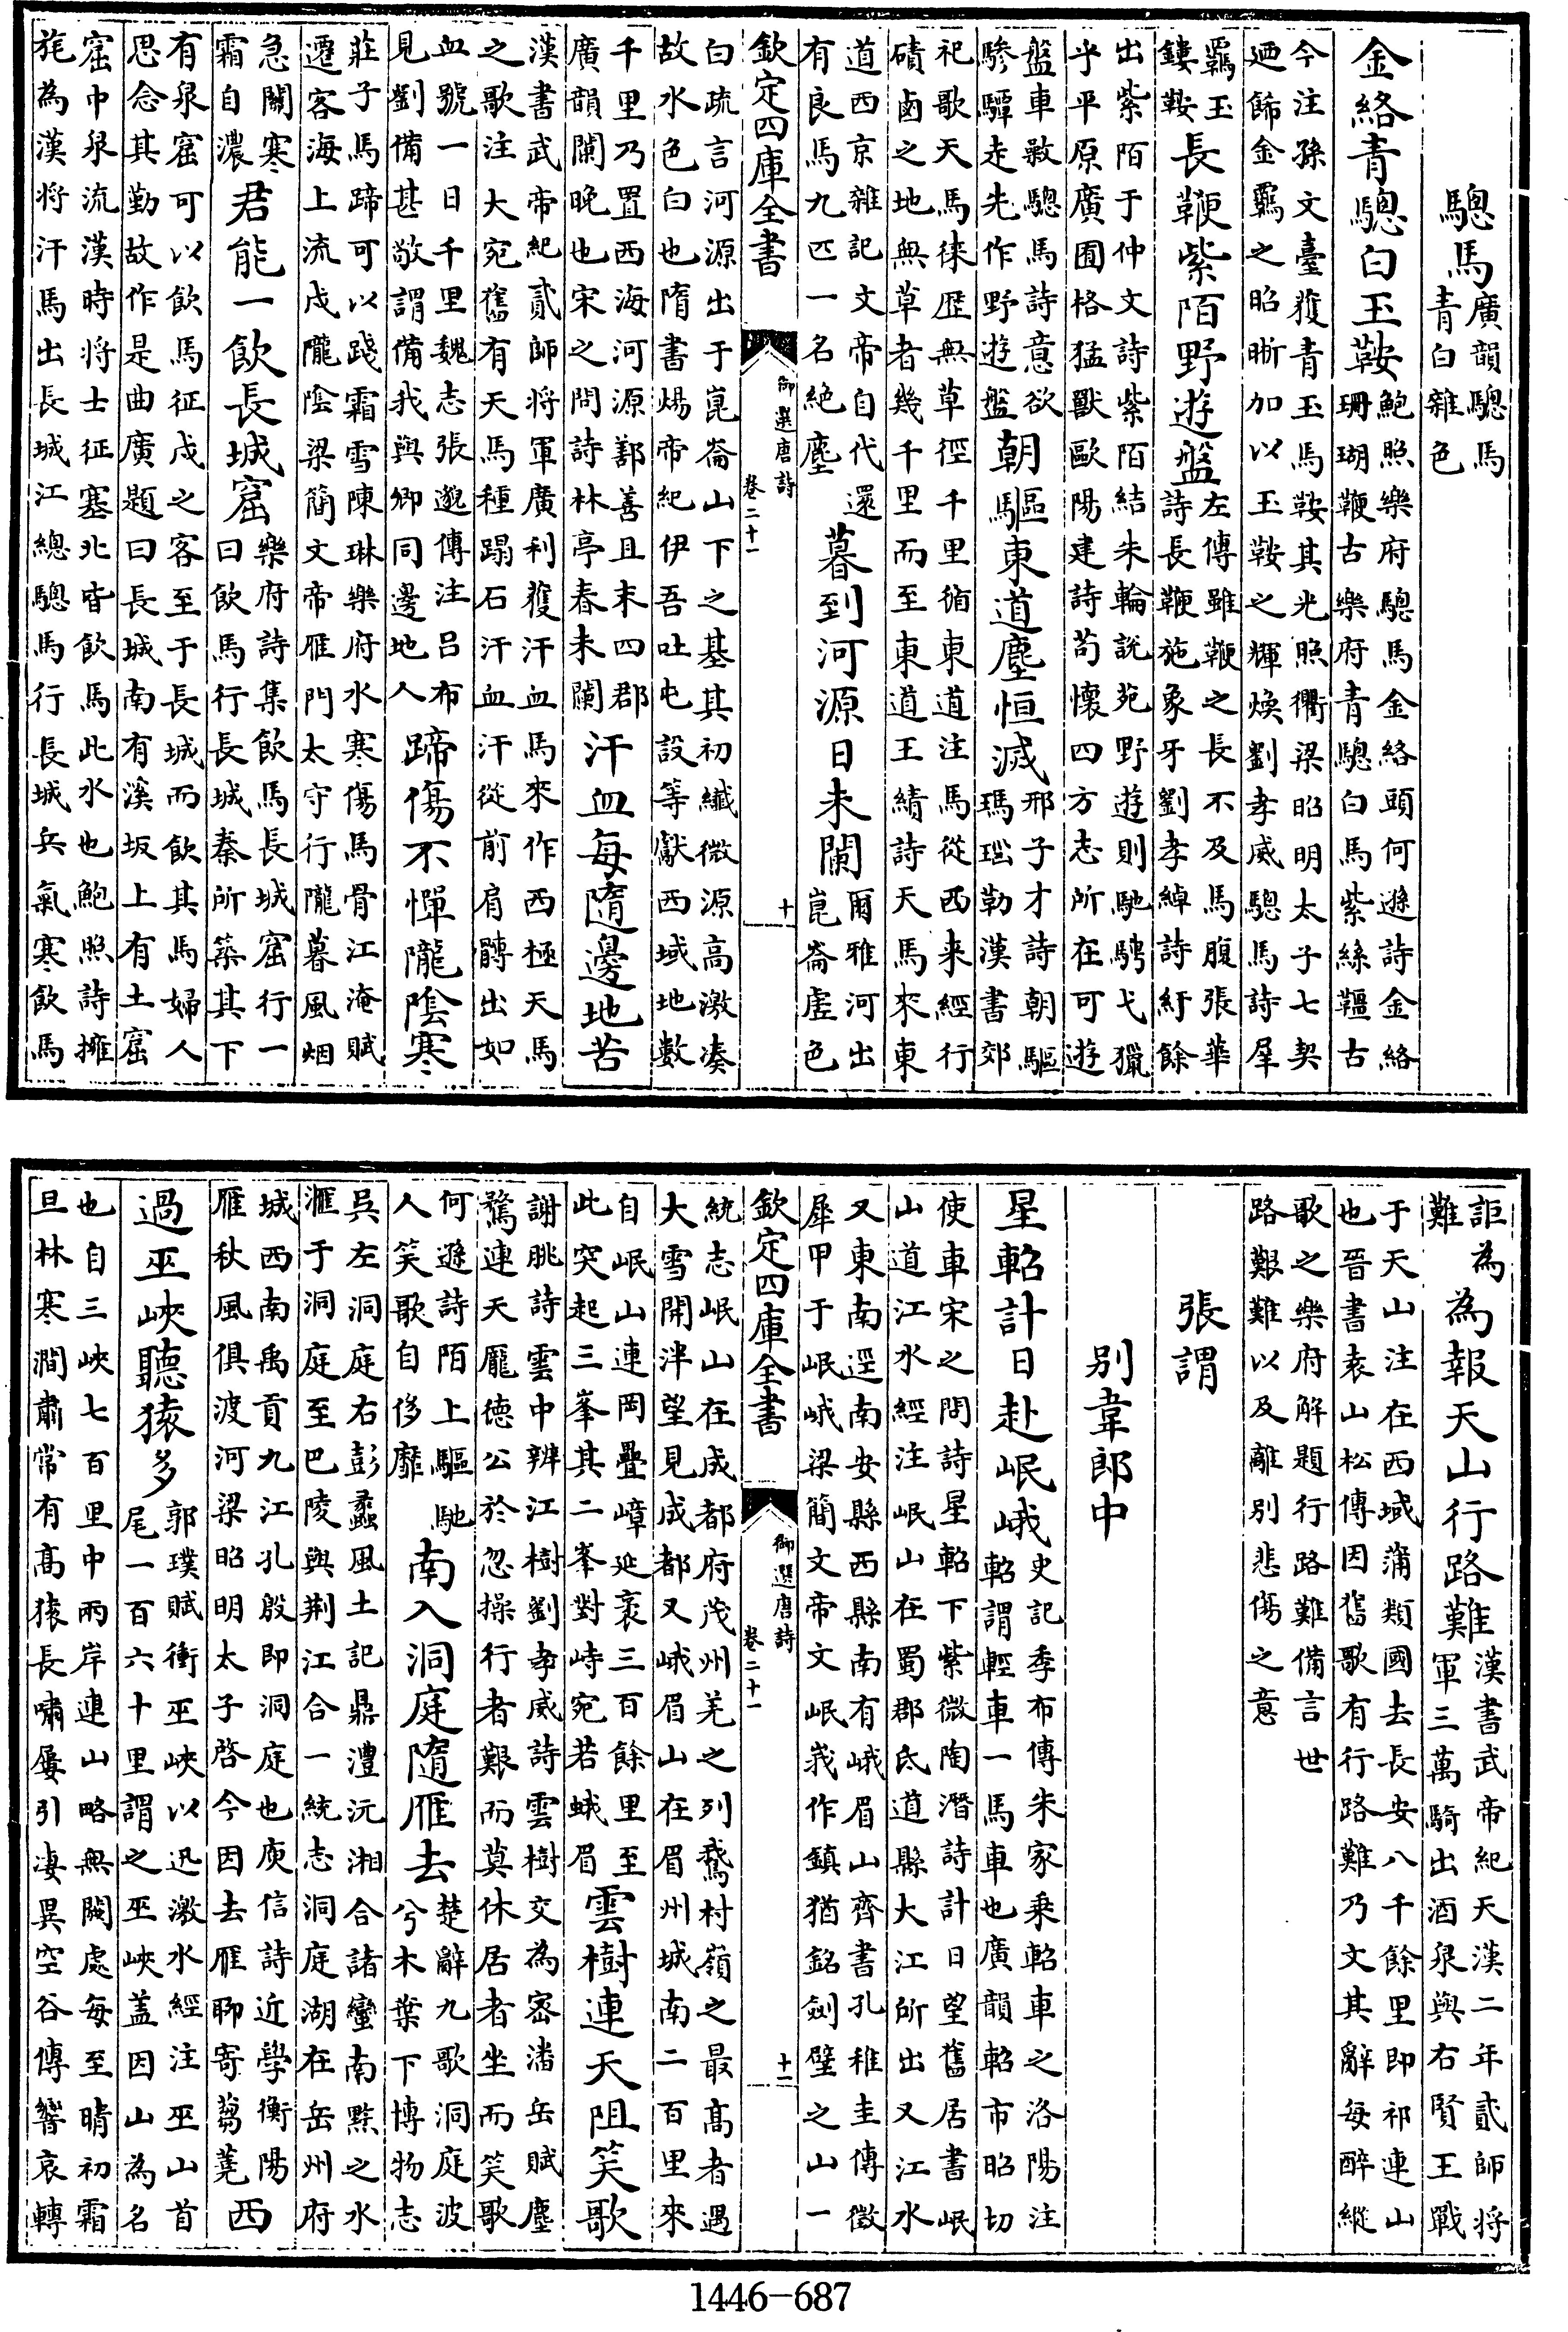 驄馬
廣韻驄馬
青白雜色
金絡青驄白玉鞍
鮑照樂府驄馬金絡頭何遜詩金絡
珊瑚鞭古樂府青驄白馬紫絲韁古
今注孫文臺獲青玉馬鞍其光照衢梁昭明太子七契
廼飾金羈之昭晰加以玉鞍之輝煥劉孝威驄馬詩犀
羈玉
鏤鞍
長鞭紫陌野遊盤
左傳雖鞭之長不及馬腹張華
詩長鞭施象牙劉孝綽詩紆餘
出紫陌于仲文詩紫陌結朱輪說苑野遊則馳騁弋獵
乎平原廣囿格猛獸歐陽建詩苟懷四方志所在可遊
盤車敫驄馬詩意欲
驂驔走先作野遊盤
朝驅東道塵恒滅
邢子才詩朝驅
瑪瑙勒漢書郊
祀歌天馬徠歷無草徑千里循東道注馬從西来經行
磧鹵之地無草者幾千里而至東道王績詩天馬來東
道西京雜記文帝自代還
有良馬九匹一名絶塵
暮到河源日未闌
爾雅河出
崑崙虛色
欽定四庫全書
御選唐詩
卷二十一
十
白疏言河源出于崑崙山下之基其初纖微源高激湊
故水色白也隋書煬帝紀伊吾吐屯設等獻西域地數
千里乃置西海河源鄯善且末四郡
廣韻闌晚也宋之問詩林亭春未闌
汗血每隨邊地苦
漢書武帝紀貳師將軍廣利獲汗血馬來作西極天馬
之歌注大宛舊有天馬種蹋石汗血汗從前肩髆出如
血號一日千里魏志張邈傳注呂布
見劉備甚敬謂備我與卿同邊地人
蹄傷不憚隴陰寒
莊子馬蹄可以踐霜雪陳琳樂府水寒傷馬骨江淹賦
遷客海上流戍隴陰梁簡文帝雁門太守行隴暮風烟
急關寒
霜自濃
君能一飲長城窟
樂府詩集飲馬長城窟行一
曰飲馬行長城秦所築其下
有泉窟可以飲馬征戍之客至于長城而飲其馬婦人
思念其勤故作是曲廣題曰長城南有溪坂上有土窟
窟中泉流漢時將士征塞北皆飲馬此水也鮑照詩擁
旄為漢將汗馬出長城江總驄馬行長城兵氣寒飲馬
詎為
難
為報天山行路難
漢書武帝紀天漢二年貳師將
軍三萬騎出酒泉與右賢王戰
于天山注在西域蒲類國去長安八千餘里即祁連山
也晉書袁山松傳因舊歌有行路難乃文其辭每醉縱
歌之樂府解題行路難備言世
路艱難以及離別悲傷之意
張謂
別韋郎中
星軺計日赴岷峨
史記季布傳朱家乘軺車之洛陽注
軺謂輕車一馬車也廣韻軺市昭切
使車宋之問詩星軺下紫微陶潛詩計日望舊居書岷
山道江水經注岷山在蜀郡氐道縣大江所出又江水
又東南逕南安縣西縣南有峨眉山齊書孔稚圭傳徵
犀甲于岷峨梁簡文帝文岷峩作鎮猶銘劍壁之山一
欽定四庫全書
御選唐詩
卷二十一
十一
統志岷山在成都府茂州羌之列鵞村嶺之最高者遇
大雪開泮望見成都又峨眉山在眉州城南二百里來
自岷山連岡疊嶂延袤三百餘里至
此突起三峯其二峯對峙宛若蛾眉
雲樹連天阻笑歌
謝朓詩雲中辨江樹劉孝威詩雲樹交為密潘岳賦塵
驚連天龐德公於忽操行者艱而莫休居者坐而笑歌
何遜詩陌上驅馳
人笑歌自侈靡
南入洞庭隨雁去
楚辭九歌洞庭波
兮木葉下博物志
吳左洞庭右彭蠡風土記鼎澧沅湘合諸蠻南黔之水
滙于洞庭至巴陵與荆江合一統志洞庭湖在岳州府
城西南禹貢九江孔殷即洞庭也庾信詩近學衡陽
雁秋風俱渡河梁昭明太子啓今因去雁聊寄蒭蕘
西
過巫峽聽猿多
郭璞賦衝巫峽以迅激水經注巫山首
尾一百六十里謂之巫峽蓋因山為名
也自三峽七百里中兩岸連山略無闕處每至晴初霜
旦林寒澗肅常有高猿長嘯屢引淒異空谷傳響哀轉
1446-687